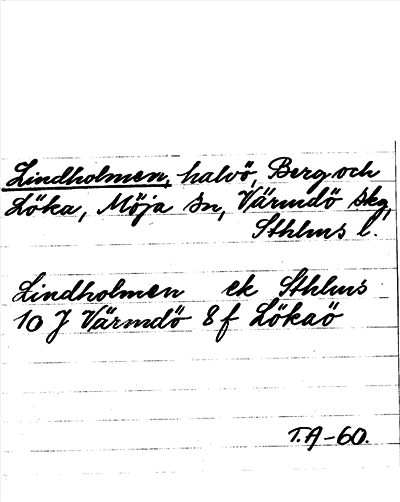 Lindholmen, halvö, Berg och
Löka, Möja sn, Värmdö skg,
Sthlms l.
Lindholmen ek Sthlms
10 J Värmdö 8 f Lökaö
T.A-60.